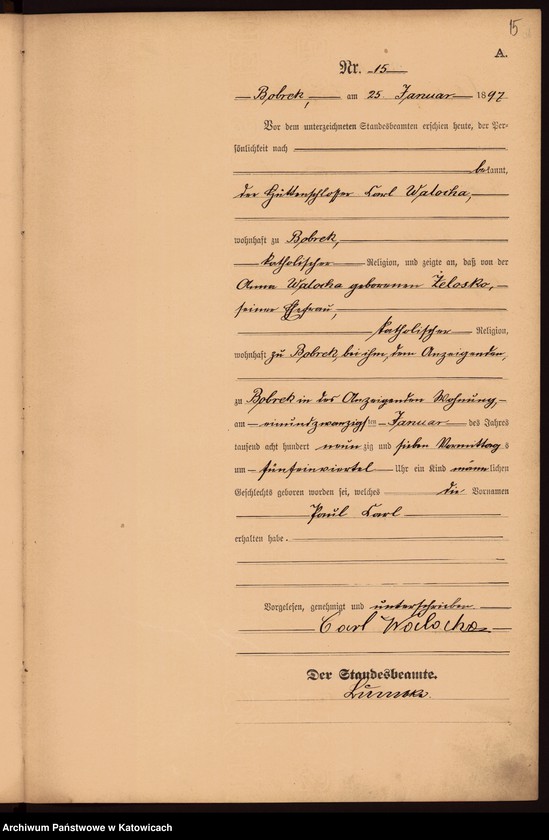 15
A.
Nr. 15
Bobrek, am 25 Januar 1897
Vor dem unterzeichneten Standesbeamten erschien heute, der Per-
sönlichkeit nach
bekannt,
der Hüttenschlosser Carl Walocha,
wohnhaft zu Bobrek,
katholischer Religion, und zeigte an, daß von der
Anna Walocha geborenen Żelosko,
seiner Ehefrau,
katholischer Religion,
wohnhaft zu Bobrek, bei ihm, dem Anzeigenden,
zu Bobrek in des Anzeigenden Wohnung,
am einundzwanzigsten Januar des Jahres
tausend acht hundert neunzig und sieben Vormittags
um fünfeinviertel Uhr ein Kind männlichen
Geschlechts geboren worden sei, welches die Vornamen
Paul Carl
erhalten habe.
Vorgelesen, genehmigt und unterschrieben
Carl Walocha
Der Standesbeamte.
Archiwum Państwowe w Katowicach